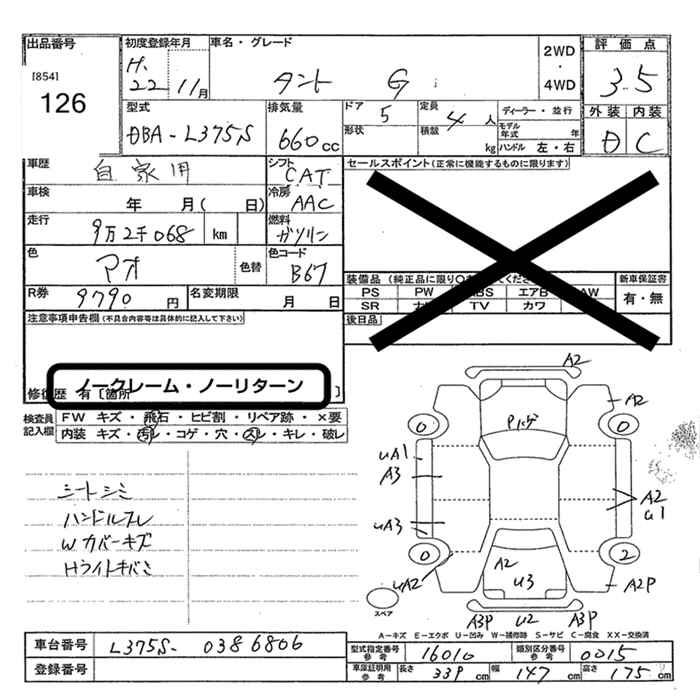 出品番号
[854]
126
初度登録年月
H.22 11月
車名・グレード
タント G
2WD
・
4WD
評価点
3.5
外装 内装
D C
型式
DBA-L375S
排気量
660cc
ドア
5
形状
定員
4人
積載 kg
ディーラー・並行
モデル年式 年
ハンドル 左・右
車歴
自家用
シフト
CAT
車検
年 月( 日)
冷房
AAC
走行
9万2千068 km
燃料
ガソリン
色
アオ
色替
色コード
B67
R券
9790円
名変期限
月 日
セールスポイント(正常に機能するものに限ります)
装備品 (純正品に限り
ください)
新車保証書
PS PW ABS エアB AW
有・無
SR ナビ TV カワ
後日品
注意事項申告欄(不具合内容等は具体的に記入して下さい)
ノークレーム・ノーリターン
修復歴 有 [箇所 ]
検査員記入欄
FW キズ・飛石・ヒビ割・リペア跡・×要
内装 キズ・汚レ・コゲ・穴・スレ・キレ・破レ
シートシミ
ハンドルスレ
Wカバーキズ
Hライトキバミ
A2
A2
0 0
Pハゲ
uA1
A3
A2
u1
uA3
0 2
A2
u3
uA2
A2P
スペア
A3P u2 A3P
A-キズ E-エクボ U-凹み W-補修跡 S-サビ C-腐食 XX-交換済
車台番号
L375S-0386806
型式指定番号 参考
16010
類別区分番号 参考
0015
登録番号
車庫証明用 参考
長さ 339cm 幅 147cm 高さ 175cm